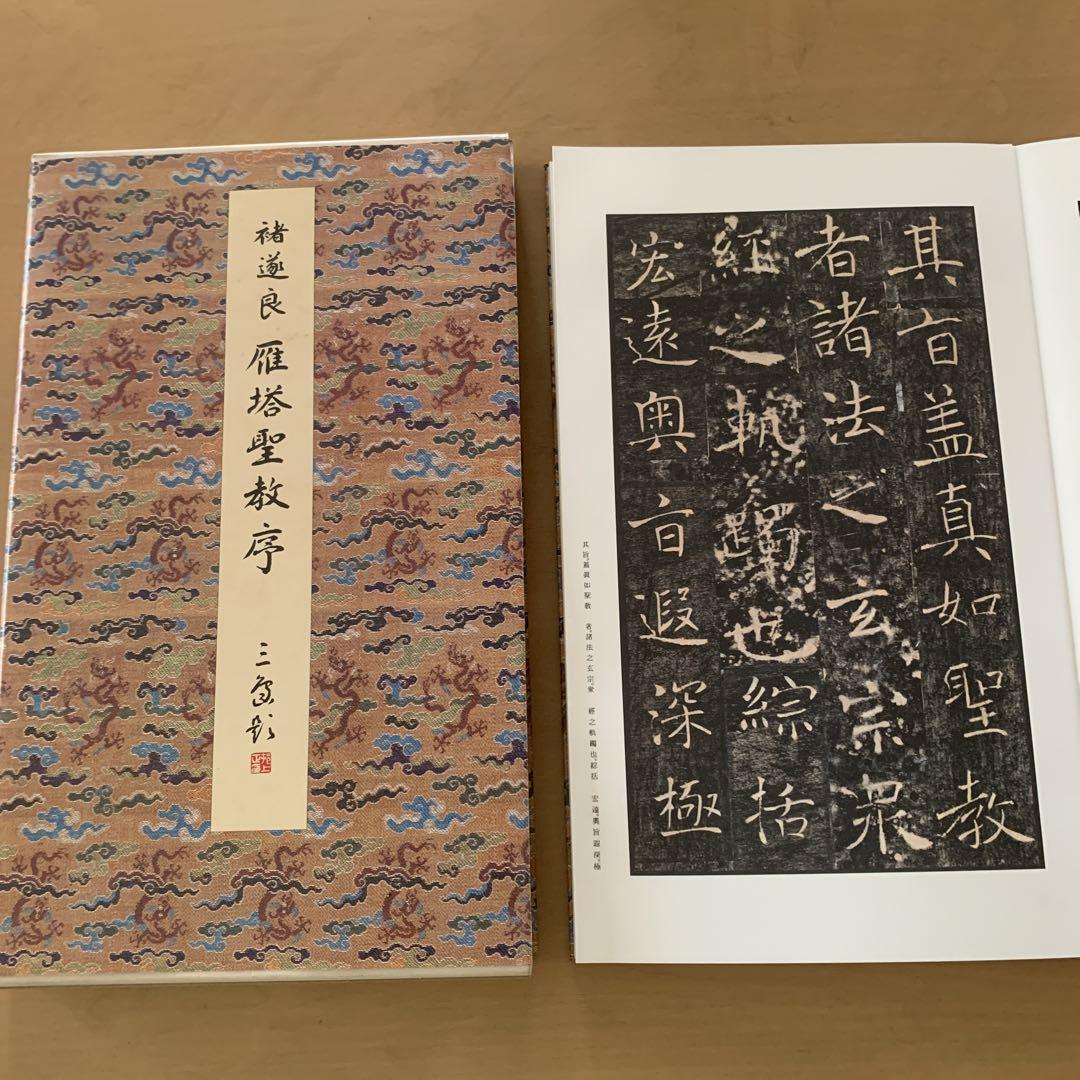 褚遂良 雁塔聖教序
其旨盖真如聖教
者諸法之玄宗衆
經之軌躅也綜括
宏遠奥旨遐深極
其旨、蓋眞如聖教 者、諸法之玄宗、衆 經之軌躅也、綜括 宏遠、奧旨遐深、極